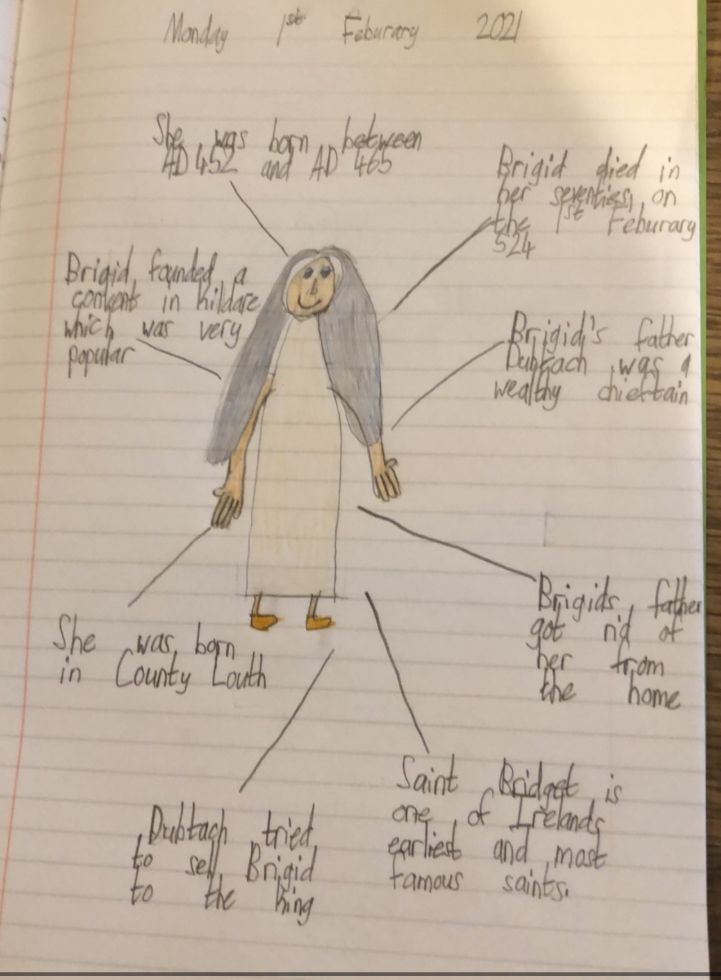 Monday 1st Feburary 2021
She was born between
AD 452 and AD 465
Brigid died in
her seventies, on
the 1st Feburary
524
Brigid founded a
convents in Kildare
which was very
popular
Brigid's father
Dubtach was a
wealthy chieftain
She was born
in County Louth
Brigids father
got rid of
her from
the home
Dubtach tried
to sell Brigid
to the king
Saint Bridget is
one of Irelands
earliest and most
famous saints.